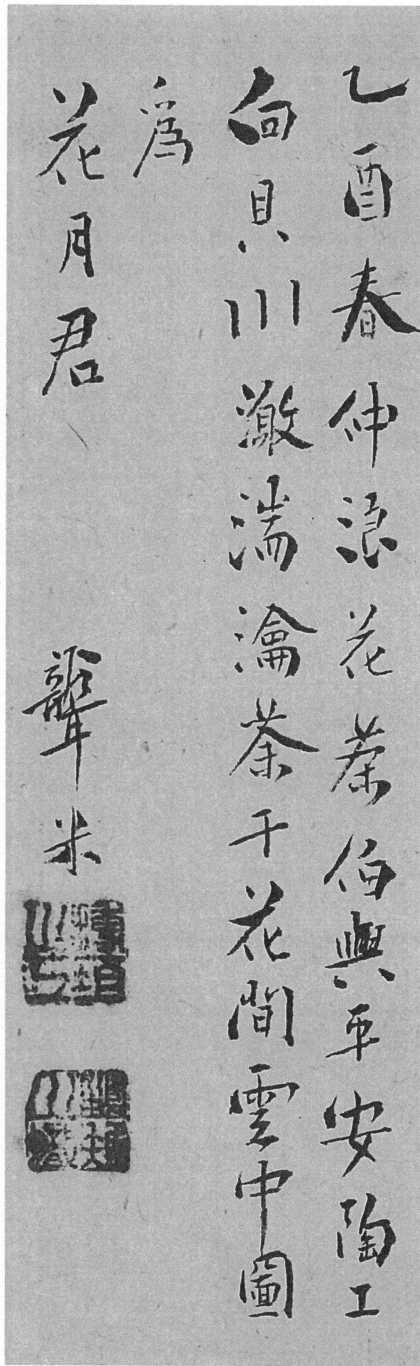 乙酉春仲浪花茶伯與平安陶工
向貝川澂湍瀹茶于花間雲中圖
為
花月君
聾米